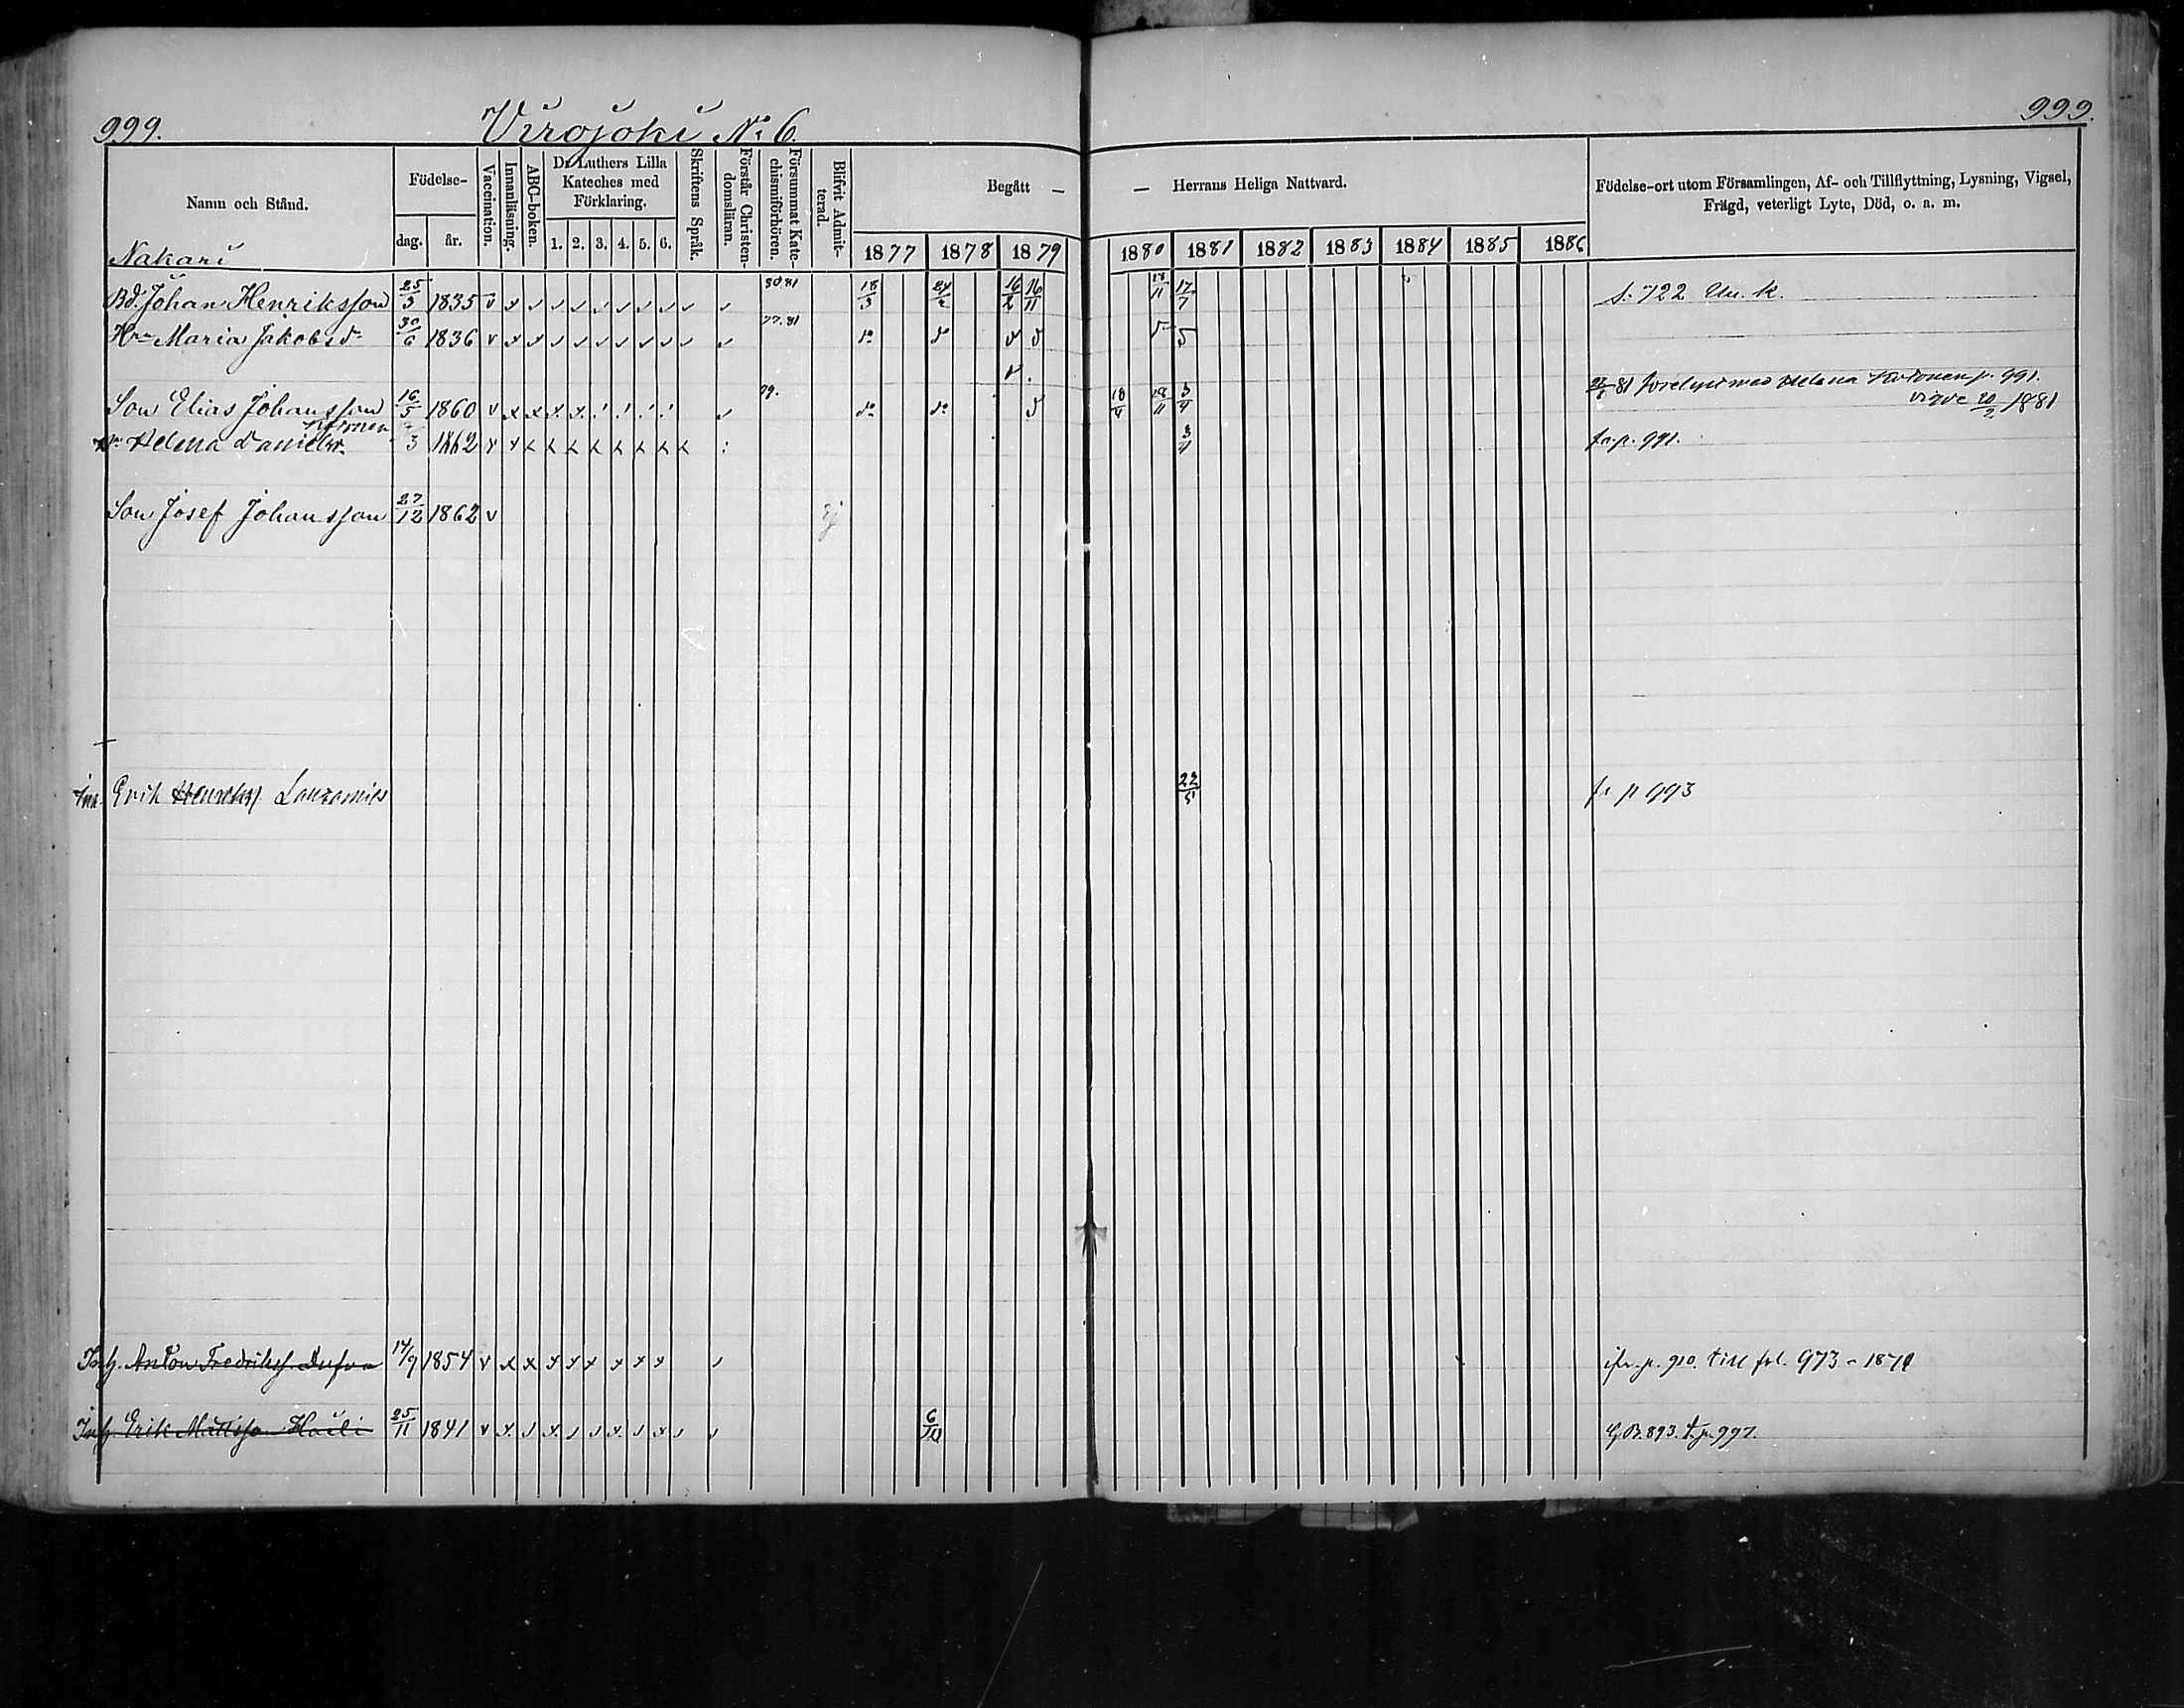 999. Virojoki No 6. 999.
Namn och Stånd. Födelse- dag. år. Vaccination. Innanläsning. ABC-boken. Dr Luthers Lilla Kateches med Förklaring. 1. 2. 3. 4. 5. 6. Skriftens Språk. Förstår Christendomsläran. Försummat Katechismiförhören. Blifvit Admitterad. Begått — — Herrans Heliga Nattvard. Födelse-ort utom Församlingen, Af- och Tillflyttning, Lysning, Vigsel, Frägd, veterligt Lyte, Död, o. a. m.
1877 1878 1879 1880 1881 1882 1883 1884 1885 1886
Nakari
Bd. Johan Henriksson 25/3 1835 v 80 81 18/3 24/2 16/2 16/11 28/11 17/7 s. 722
Hru Maria Jakobsdr 30/6 1836 v 77. 81
Son Elias Johansson 16/5 1860 v 79. 18/4 28/11 3/4 81 med Helena p. 991.
vigde 20/2 1881
Helena Danielsdr 3 1862 v 3/4 fr. p. 991.
Son Josef Johansson 27/12 1862 v ej
Inh. Erik 22/5 fr p 993
Inh. Anton Fredrikss. 14/9 1854 v fr. p. 910. till fol. 973
Inh. Erik Mattsson 25/11 1841 v 6/10 893. t. p. 997.